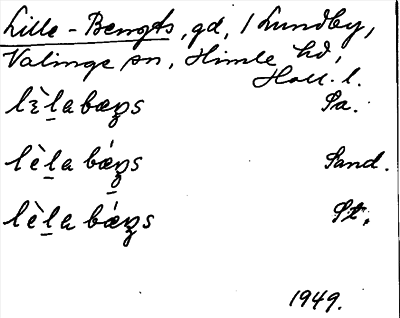 Lille-Bengts, gd, 1 Lundby,
Valinge sn, Himle hd,
Hall. l.
lɛ̀la bæŋs Sa.
lèla bǽŋs Sand.
lèla bǽŋs St.
1949.